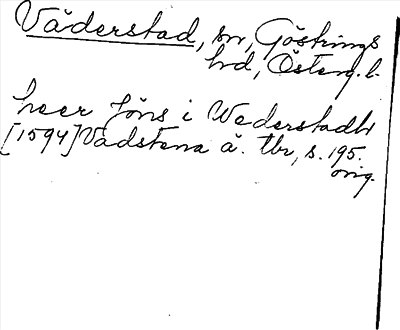 Väderstad, sn, Göstrings
hd, Österg. l.
heer Jöns i Wederstadh
[1594] Vadstena ä. tbr, s. 195.
orig.